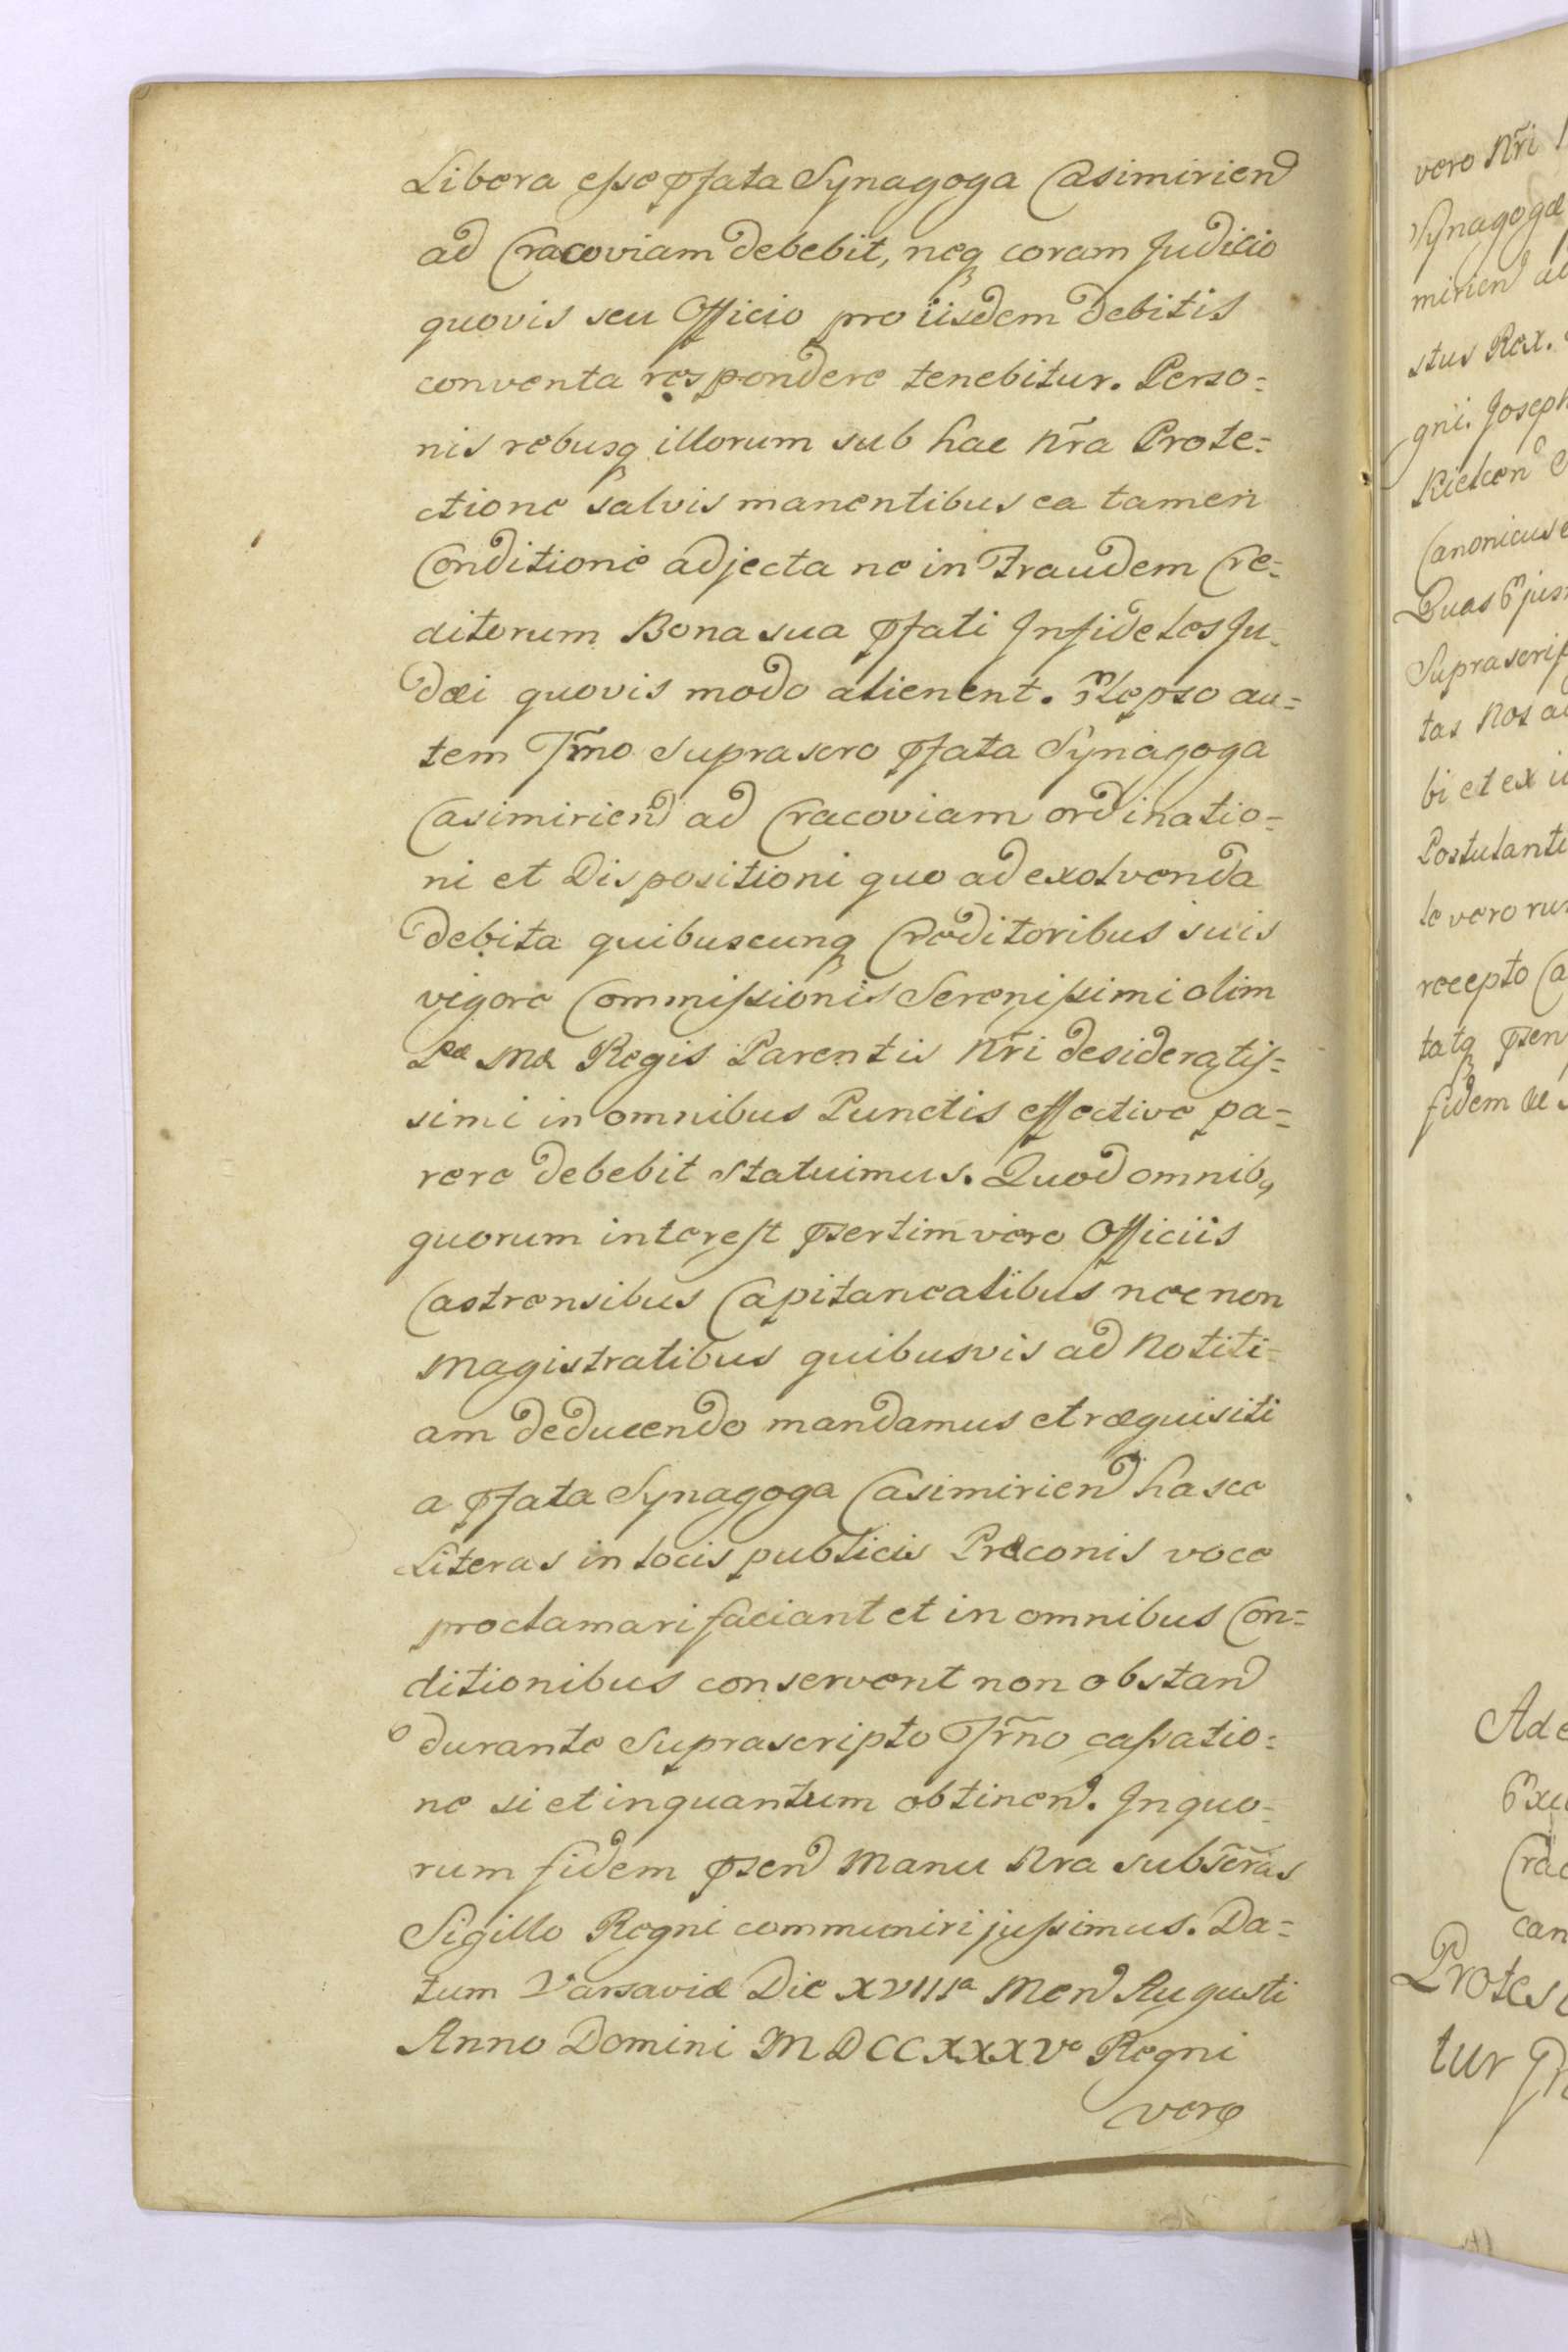 Libera esse pfata Synagoga Casimiriend
ad Cracoviam debebit, neq coram Judicio
quovis seu Officio pro iisdem debitis
conventa respondere tenebitur. Perso=
nis rebusq illorum sub hac nr̃a Prote=
ctione salvis manentibus ea tamen
Conditione adjecta ne in Fraudem Cre=
ditorum Bona sua pfati Infideles Ju=
dæi quovis modo alienent. Elepso au=
tem Tr̃mo suprascro pfata Synagoga
Casimiriend ad Cracoviam ordinatio=
ni et Dispositioni quo ad exolvenda
debita quibuscunq Creditoribus suis
vigore Commissionis Serenissimi olim
Pæ Mæ Regis Parentis nr̃i desideratis=
simi in omnibus Punctis effective pa=
rere debebit statuimus. Quod omnib9
quorum interest psertim vero Officiis
Castrensibus Capitanealibus nec non
Magistratibus quibusvis ad Notiti=
am deducendo mandamus et ræquisiti
a pfata Synagoga Casimiriend hasce
Literas in locis publicis Præconis voce
proclamari faciant et in omnibus Con=
ditionibus conservent non obstand
durante Suprascripto Tr̃mo cassatio=
ne si et inquantum obtinend. In quo=
rum fidem psend Manu Nra subscr̃as
Sigillo Regni communiri jussimus. Da=
tum Varsaviæ Die XVIIIa Mend Augusti
Anno Domini MDCCXXXVo Regni
vero
vero Nr̃i
Synagogæ
miriend ad
stus Rex.
gni. Joseph
Kielcen
Canonicus
Quas Ejus
Suprascrip
tas Nos a
bi et ex
Postulant
le vero
recepto Ca
tatq psen
fidem
Ad
Crac
can
Protes
tur